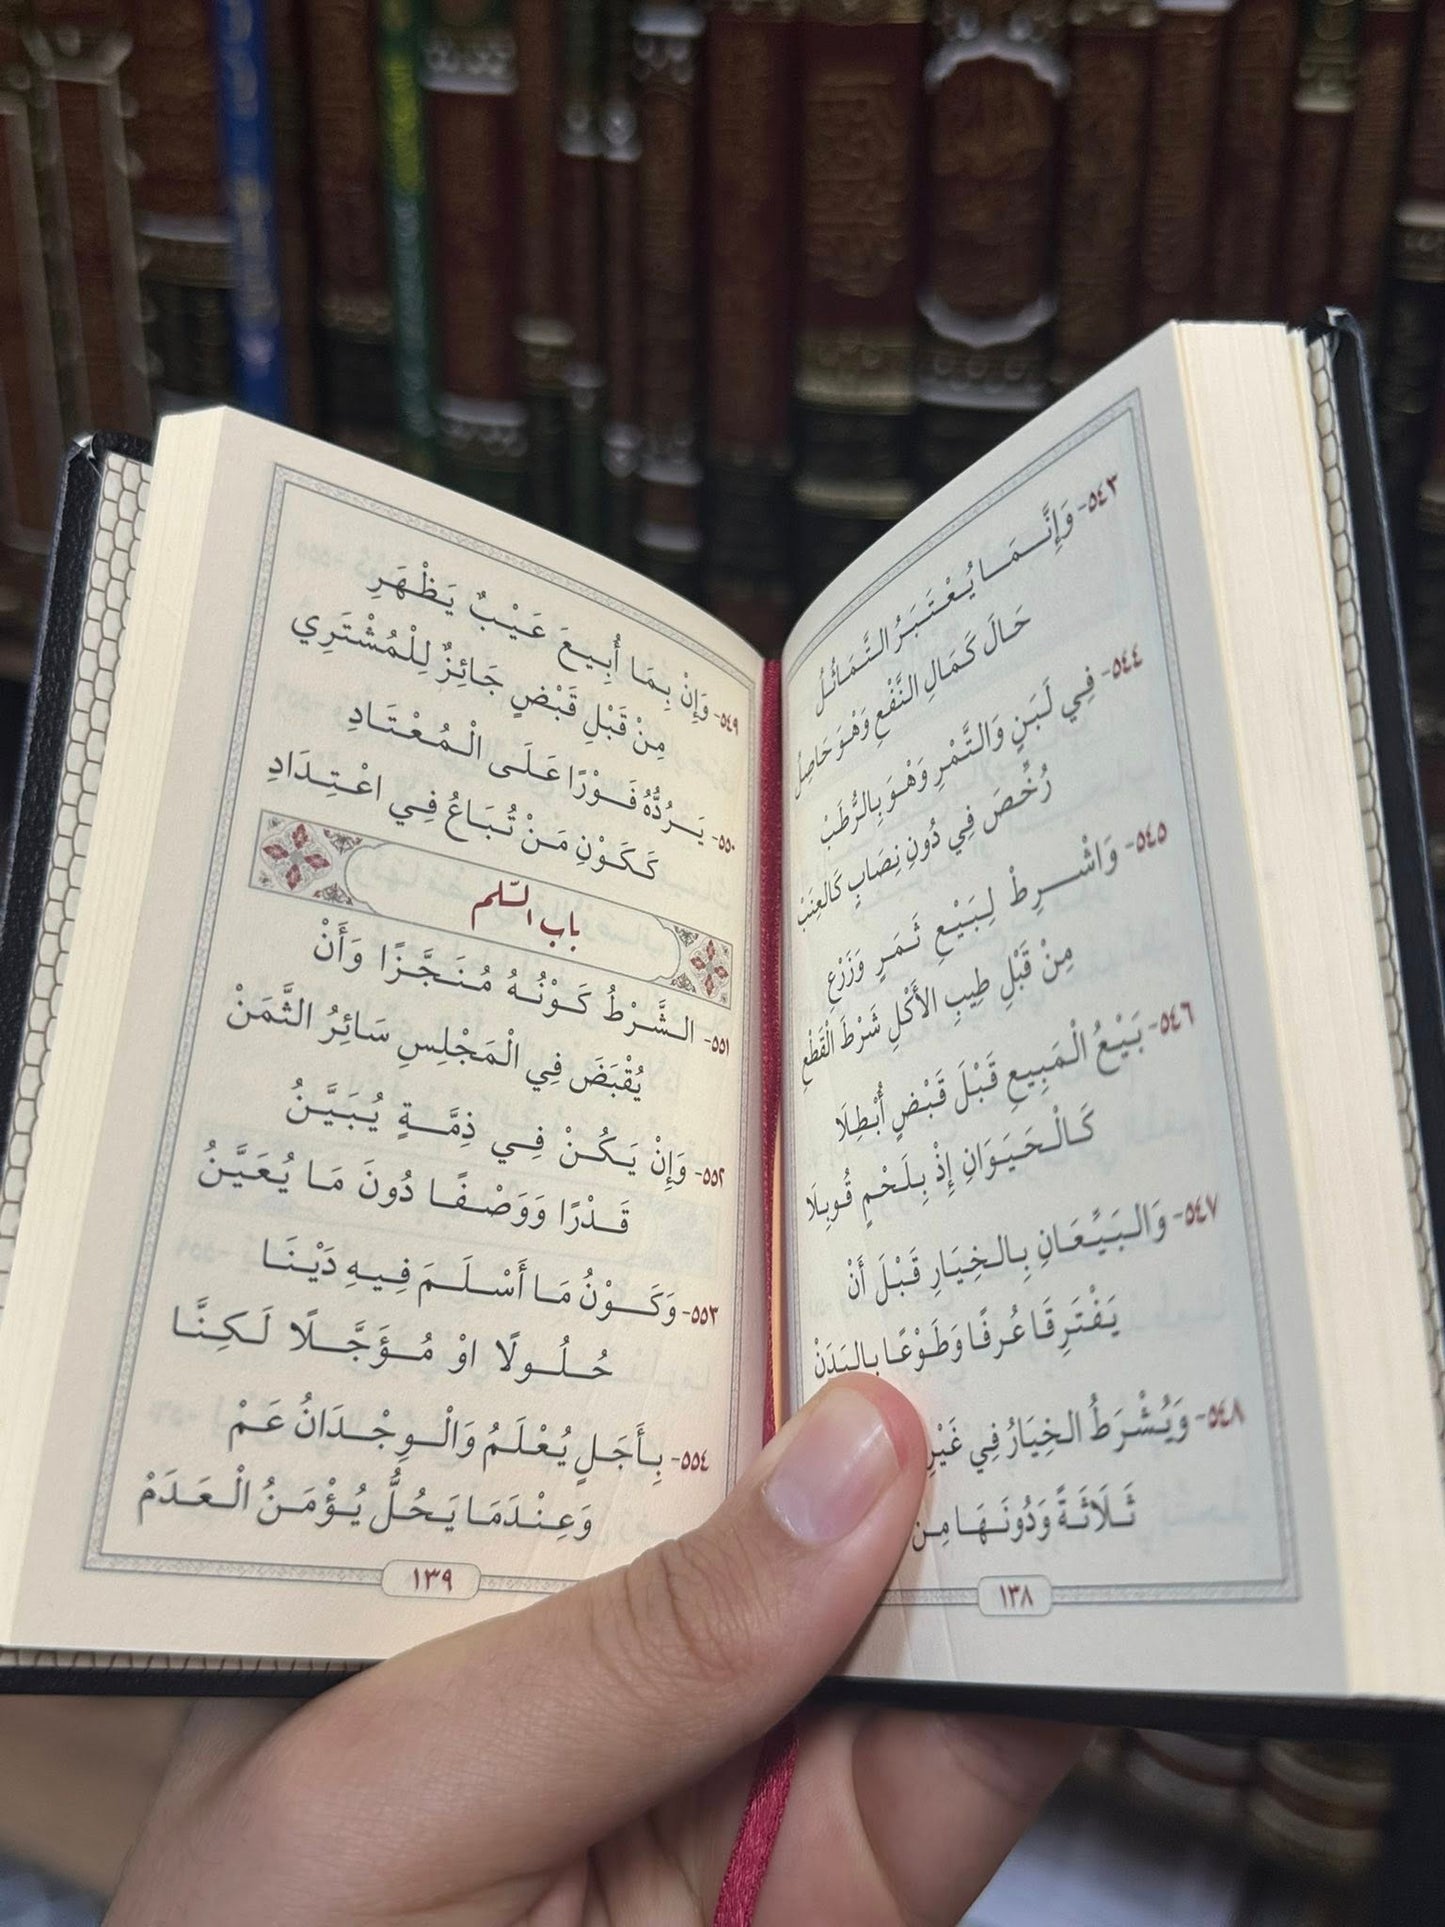 ٥٤٣- وَإِنَّمَا يُعْتَبَرُ التَّمَاثُلُ
حَالَ كَمَالِ النَّفْعِ وَهْوَ حَاصِلُ
٥٤٤- فِي لَبَنٍ وَالتَّمْرِ وَهْوَ بِالرُّطَبْ
رُخِّصَ فِي دُونِ نِصَابٍ كَالعِنَبْ
٥٤٥- وَاشْرِطْ لِبَيْعِ ثَمَرٍ وَزَرْعِ
مِنْ قَبْلِ طِيبِ الأَكْلِ شَرْطَ الْقَطْعِ
٥٤٦- بَيْعُ الْمَبِيعِ قَبْلَ قَبْضٍ أُبْطِلَا
كَالْحَيَوَانِ إِذْ بِلَحْمٍ قُوبِلَا
٥٤٧- وَالبَيِّعَانِ بِالخِيَارِ قَبْلَ أَنْ
يَفْتَرِقَا عُرفًا وَطَوْعًا بِالبَدَنْ
٥٤٨- وَيُشْرَطُ الخِيَارُ فِي غَيْرِ
ثَلَاثَةً وَدُونَهَا مِن
١٣٨
٥٤٩- وَإِنْ بِمَا أُبِيعَ عَيْبٌ يَظْهَرِ
مِنْ قَبْلِ قَبْضٍ جَائِزٌ لِلْمُشْتَرِي
٥٥٠- يَرُدُّهُ فَوْرًا عَلَى الْمُعْتَادِ
كَكَوْنِ مَنْ تُبَاعُ فِي اعْتِدَادِ
باب السّلم
٥٥١- الشَّرْطُ كَوْنُهُ مُنَجَّزًا وَأَنْ
يُقْبَضَ فِي الْمَجْلِسِ سَائِرُ الثَّمَنْ
٥٥٢- وَإِنْ يَكُنْ فِي ذِمَّةٍ يُبَيَّنُ
قَدْرًا وَوَصْفًا دُونَ مَا يُعَيَّنُ
٥٥٣- وَكَوْنُ مَا أَسْلَمَ فِيهِ دَيْنَا
حُلُولًا اوْ مُؤَجَّلًا لَكِنَّا
٥٥٤- بِأَجَلٍ يُعْلَمُ وَالْوِجْدَانُ عَمْ
وَعِنْدَمَا يَحُلُّ يُؤْمَنُ الْعَدَمْ
١٣٩